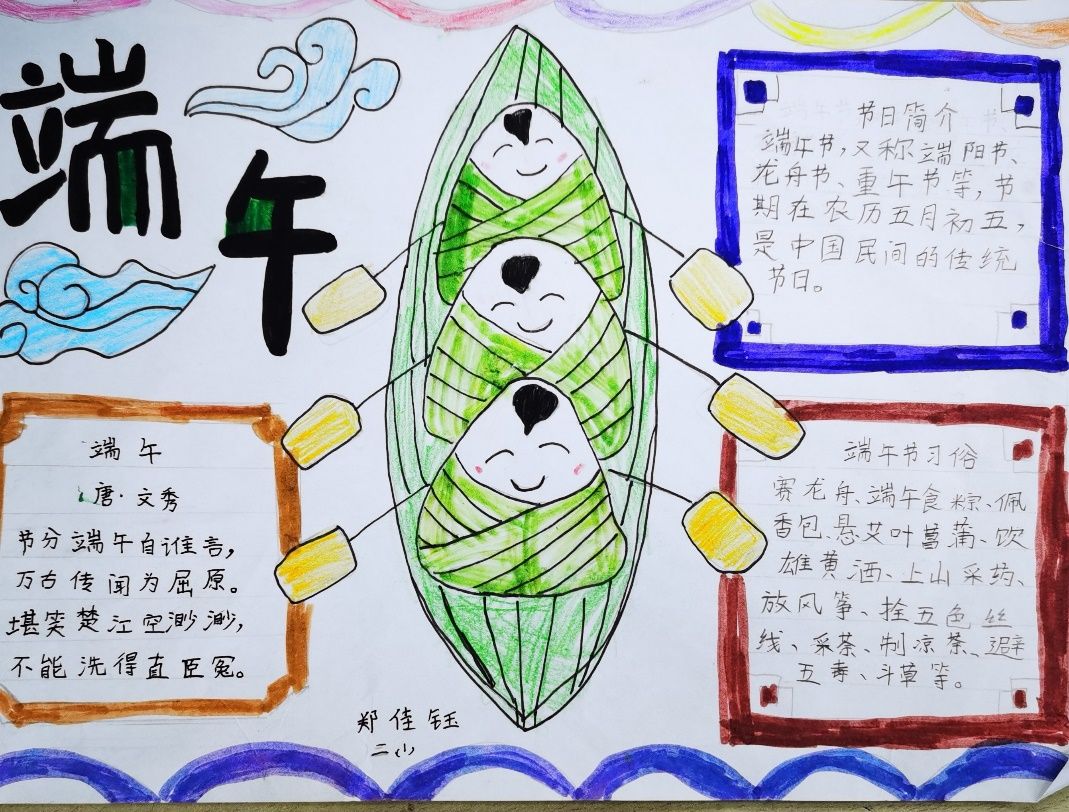 端午
节日简介
端午节，又称端阳节、
龙舟节、重午节等，节
期在农历五月初五，
是中国民间的传统
节日。
端午
唐·文秀
节分端午自谁言，
万古传闻为屈原。
堪笑楚江空渺渺，
不能洗得直臣冤。
端午节习俗
赛龙舟、端午食粽、佩
香包、悬艾叶菖蒲、饮
雄黄酒、上山采药、
放风筝、拴五色丝
线、采茶、制凉茶、避
五毒、斗草等。
郑佳钰
二小